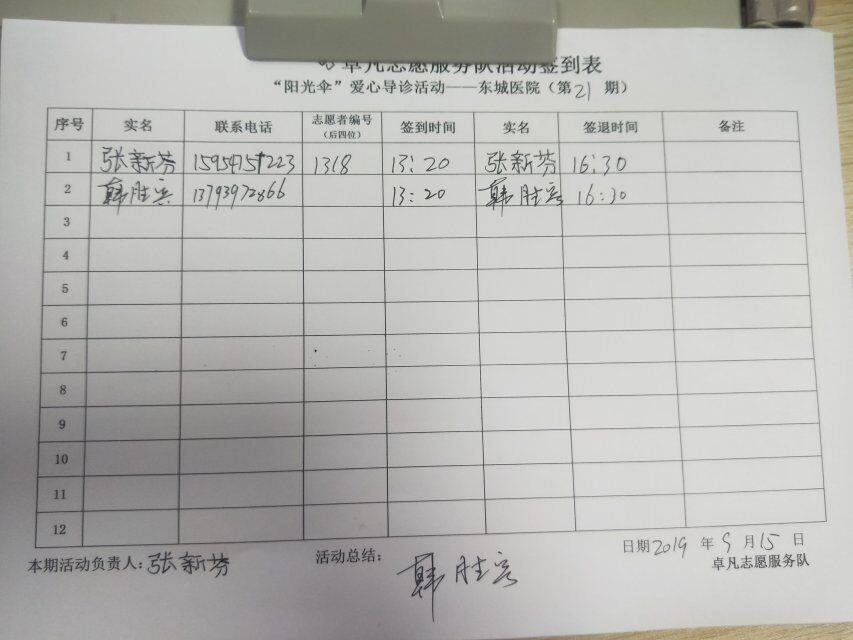 卓凡志愿服务队活动签到表
“阳光伞”爱心导诊活动——东城医院（第21期）
序号 实名 联系电话 志愿者编号（后四位） 签到时间 实名 签退时间 备注
1 张新芬 1318 13:20 张新芬 16:30
2 韩胜 13793972866 13:20 韩胜 16:30
3
4
5
6
7
8
9
10
11
12
本期活动负责人：张新芬 活动总结：韩胜 日期2019年9月15日
卓凡志愿服务队